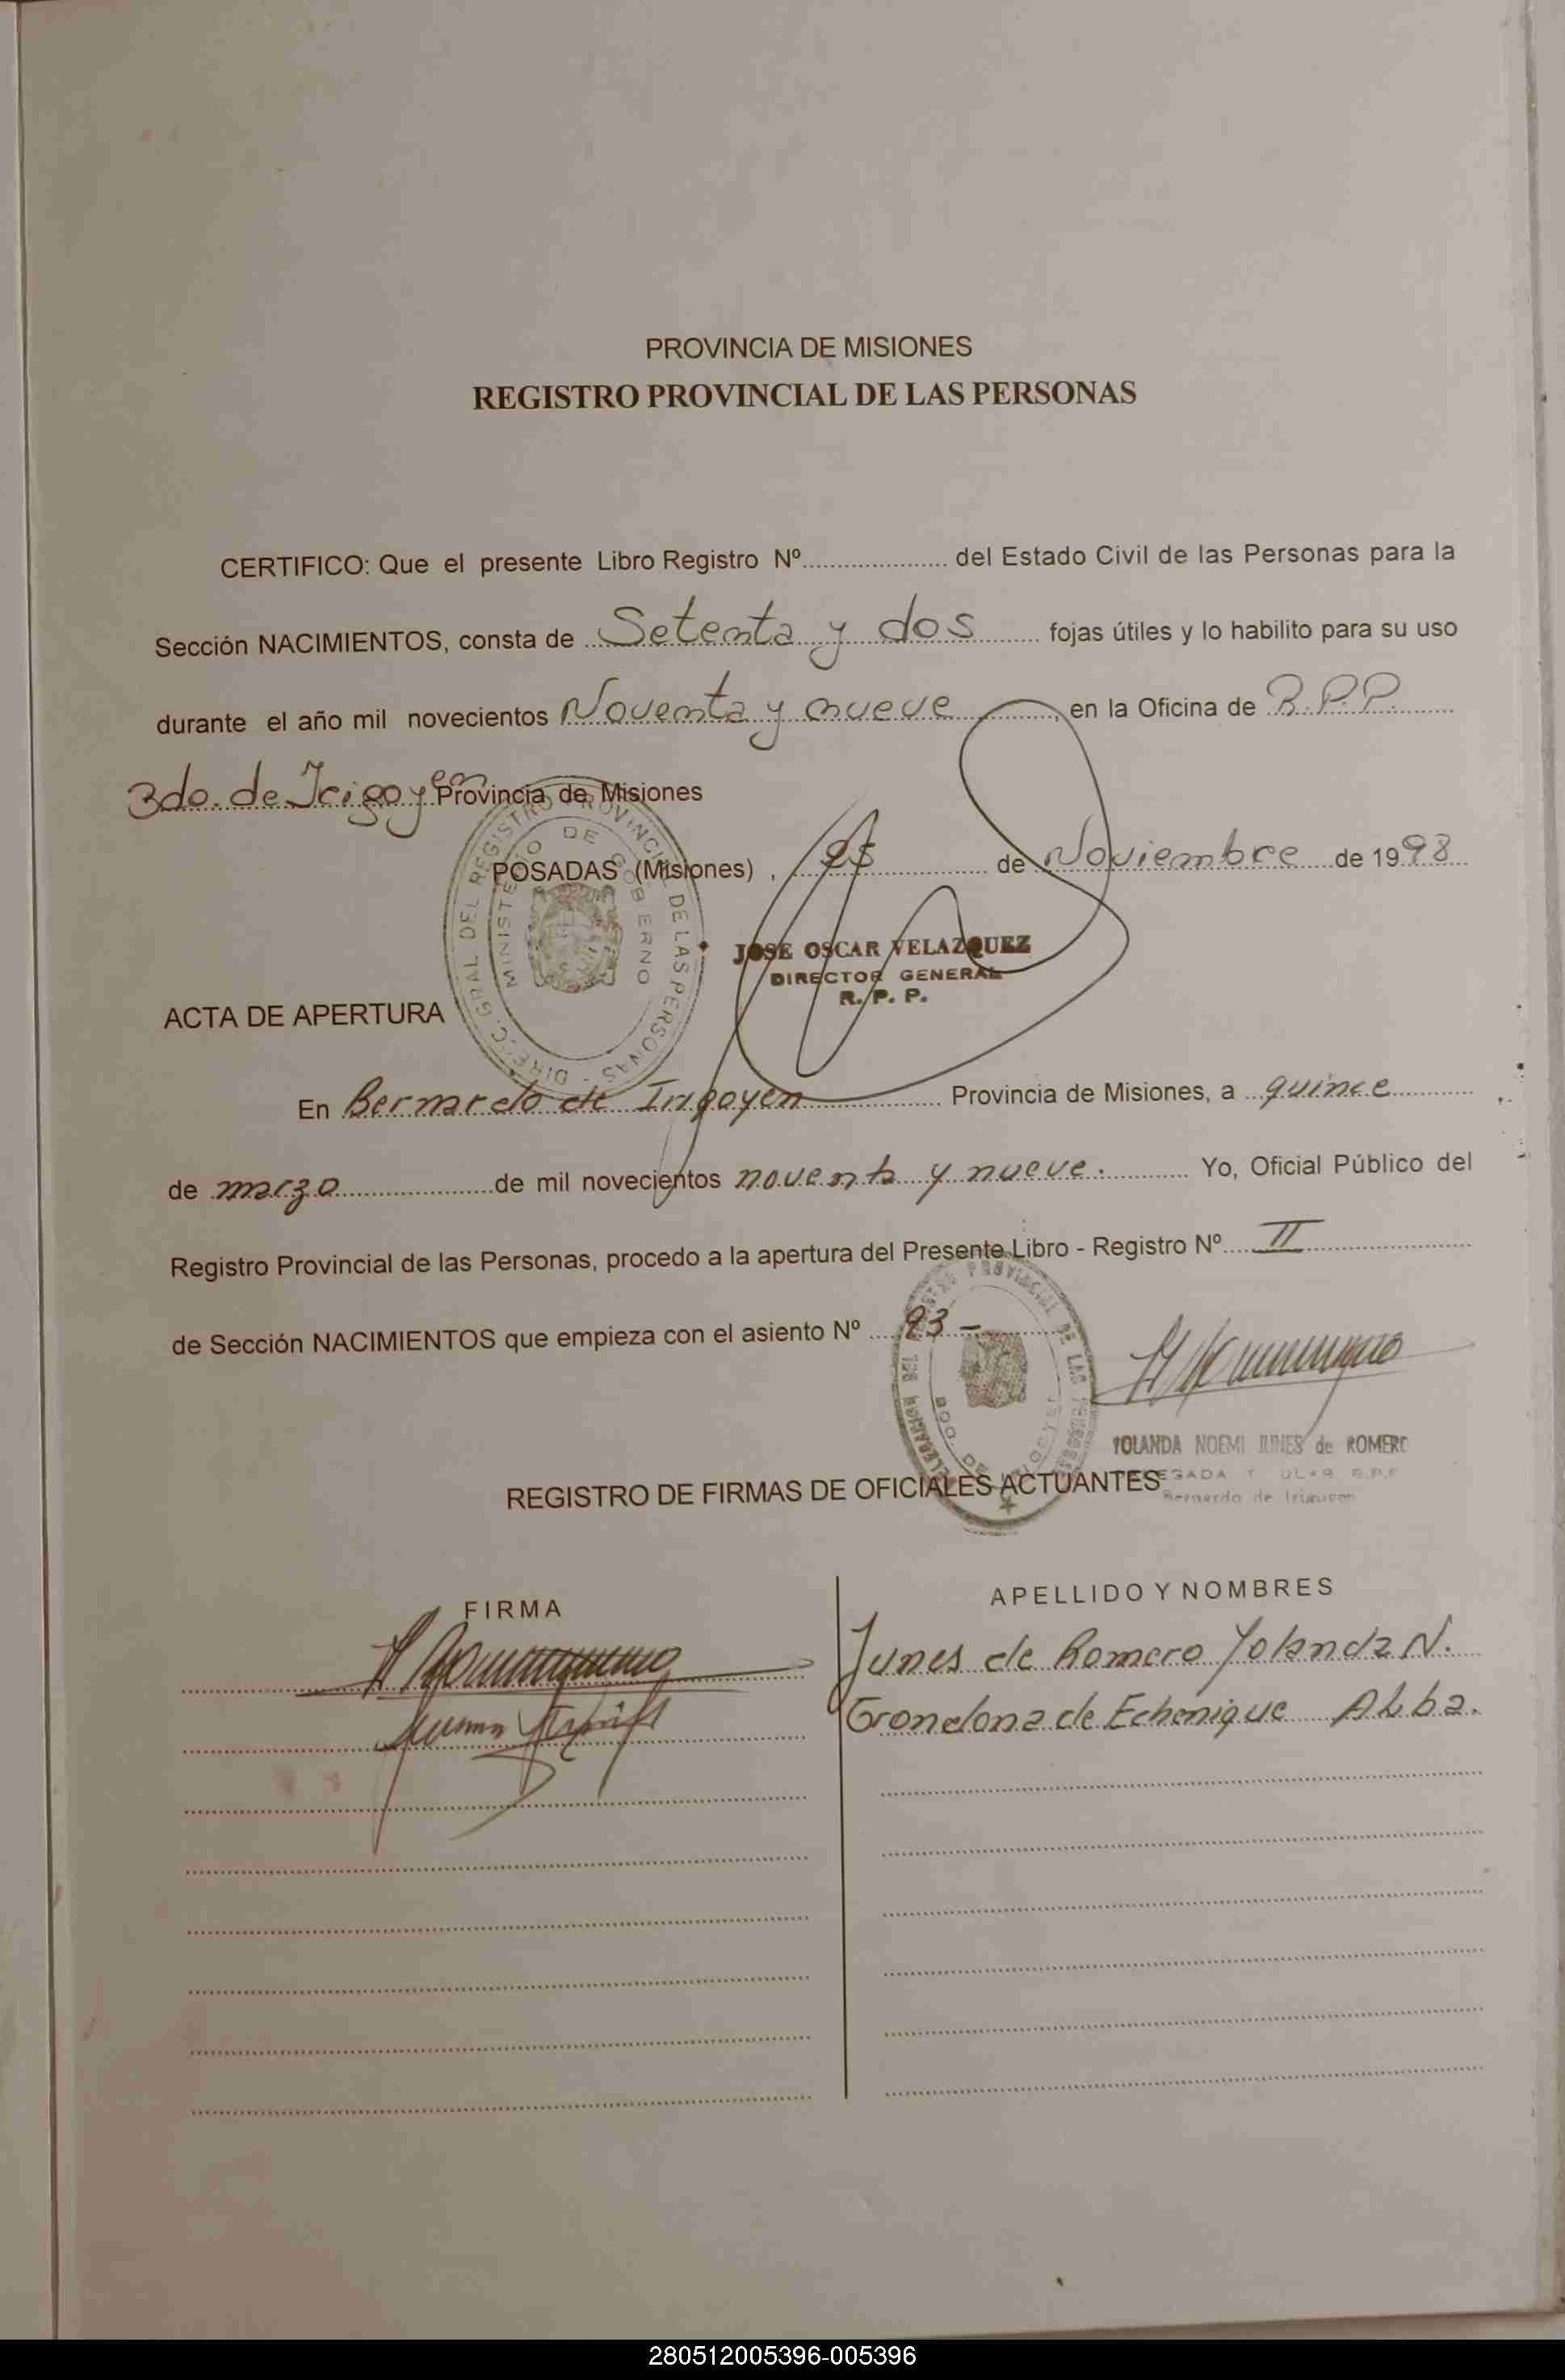 PROVINCIA DE MISIONES
REGISTRO PROVINCIAL DE LAS PERSONAS
CERTIFICO: Que el presente Libro Registro Nº.................... del Estado Civil de las Personas para la
Sección NACIMIENTOS, consta de Setenta y dos fojas útiles y lo habilito para su uso
durante el año mil novecientos Noventa y nueve, en la Oficina de R.P.P.
Bdo. de Irigoyen Provincia de Misiones
POSADAS (Misiones), 25 de Noviembre de 1998
DIRECC. GRAL. DEL REGISTRO PROVINCIAL DE LAS PERSONAS
MINISTERIO DE GOBIERNO
JOSE OSCAR VELAZQUEZ
DIRECTOR GENERAL
R. P. P.
ACTA DE APERTURA
En Bernardo de Irigoyen Provincia de Misiones, a quince
de marzo de mil novecientos noventa y nueve. Yo, Oficial Público del
Registro Provincial de las Personas, procedo a la apertura del Presente Libro - Registro Nº II
de Sección NACIMIENTOS que empieza con el asiento Nº 93-
PROVINCIAL DE LAS
BDO. DE
YOLANDA NOEMI JUNES de ROMERO
R.P.P.
Bernardo de Irigoyen
REGISTRO DE FIRMAS DE OFICIALES ACTUANTES
FIRMA
APELLIDO Y NOMBRES
Junes de Romero Yolanda N.
Grondona de Echenique Alba.
280512005396-005396